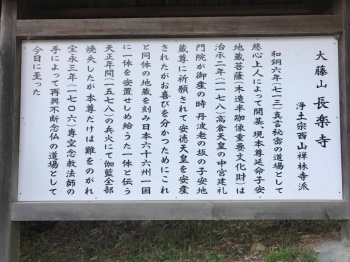 大藤山 長楽寺
浄土宗西山禅林寺派
和銅六年(七一三)真言秘密の道場として
慈心上人によって開基。現本尊延命子安
地蔵菩薩(木造半跏像重要文化財)は
治承二年(一一七八)高倉天皇の中宮建礼
門院が御産の時 丹波老の坂の子安地
蔵尊に祈願されて安徳天皇を安産
されたがお喜びを分かつためにこれ
と同体の地蔵を刻み日本六十六州一国
に一体を安置せしめ給うた一体と伝う
天正年間(一五七八)の兵火にて伽藍全部
焼失したが本尊だけは難をのがれ
宝永三年(一七〇六)専空念教法師の
手によって再興不断念仏の道場として
今日に至った